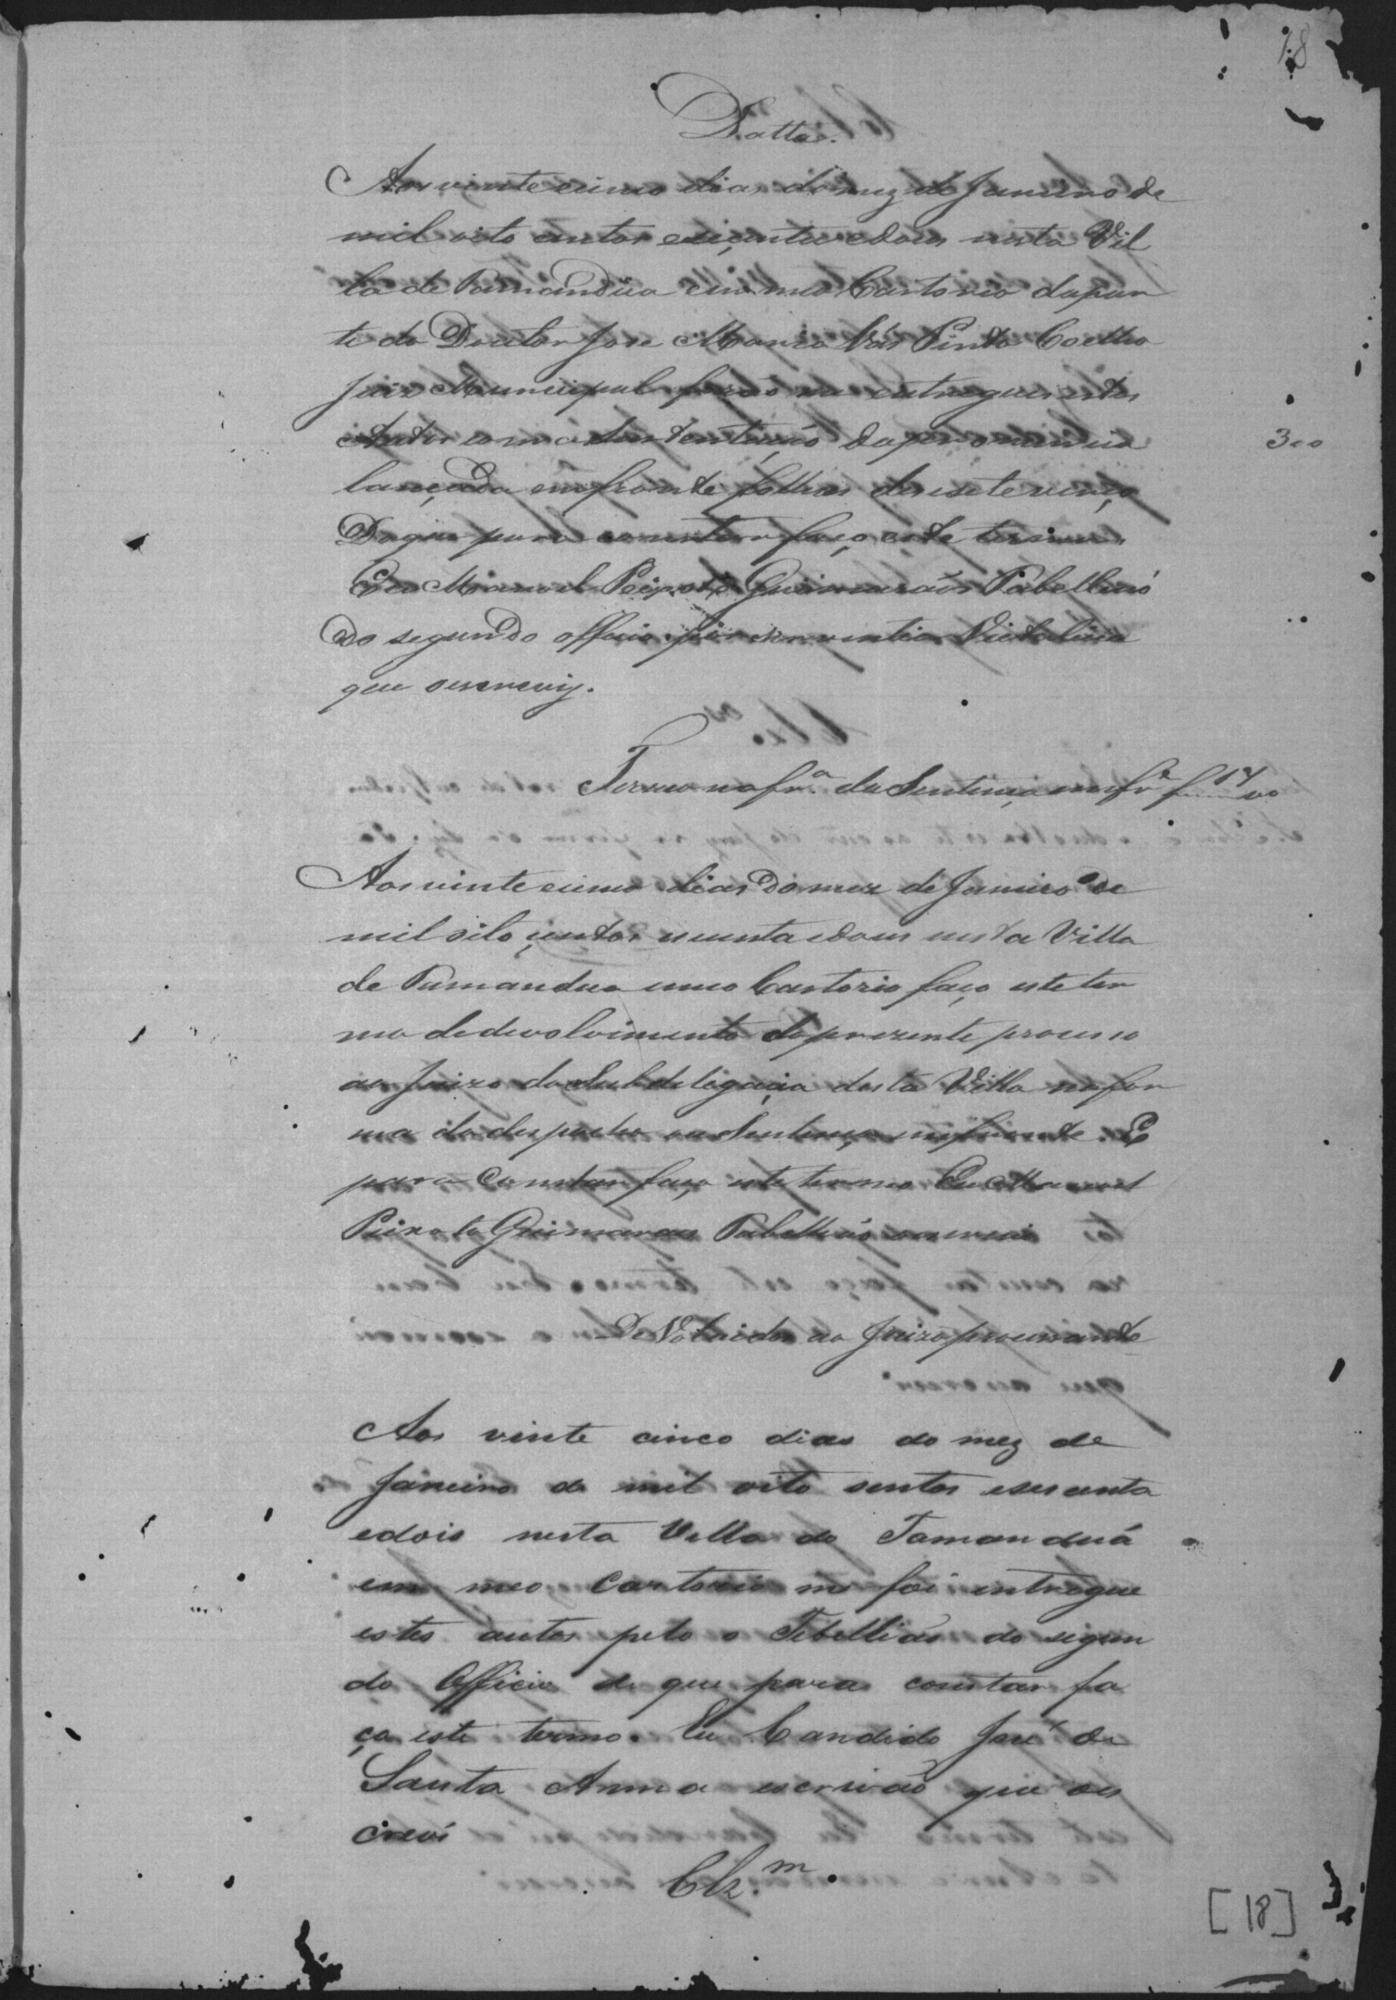 18
Datta.
Aos vinte cinco dias do mez de Janeiro de
mil oito centos esecenta edous nesta Vil
la de Tamandúa em meo Cartorio dapar
te do Doutor Jose Maria Vás Pinto Coelho
Juiz Municipal forão me entregues estes
Autos com a Sustentação dapronuncia
lançada emfronte folhas deseseteverço
Deque para constar faço este termo.
Eu Manoel Peixoto Guimaraõs Tabelliaõ
Do segundo officio por serventia Vitalicia
que oescrevy.
300
Termo nafr.ª da Sentença emfr.e f 17 vo
Aos vinte cinco dias Do mez de Janeiro de
mil oito çentos secenta edous nesta Villa
de Tamandua emeo Cartorio faço este ter
mo dedevolvimento doprezente processo
ao Juizo da Subdelegacia desta Villa nafor
ma do despacho ou Sentença emfronte. E
para Constar faço este termo Eu Manoel
Peixoto Guimaraes Tabelliaõ oescrevi
DeVolvidos ao Juizo processante
Aos vinte cinco dias do mez de
Janeiro de mil oito sentos esecenta
edois nesta Villa do Tamanduá
em meo Cartorio me foi entregue
estes autos pelo o Tebelliaõ do segun
do Officio de que para constar fa
ço este termo. Eu Candido José de
Santa Anna escrivaõ que os
crevi
Clz.m
[18]